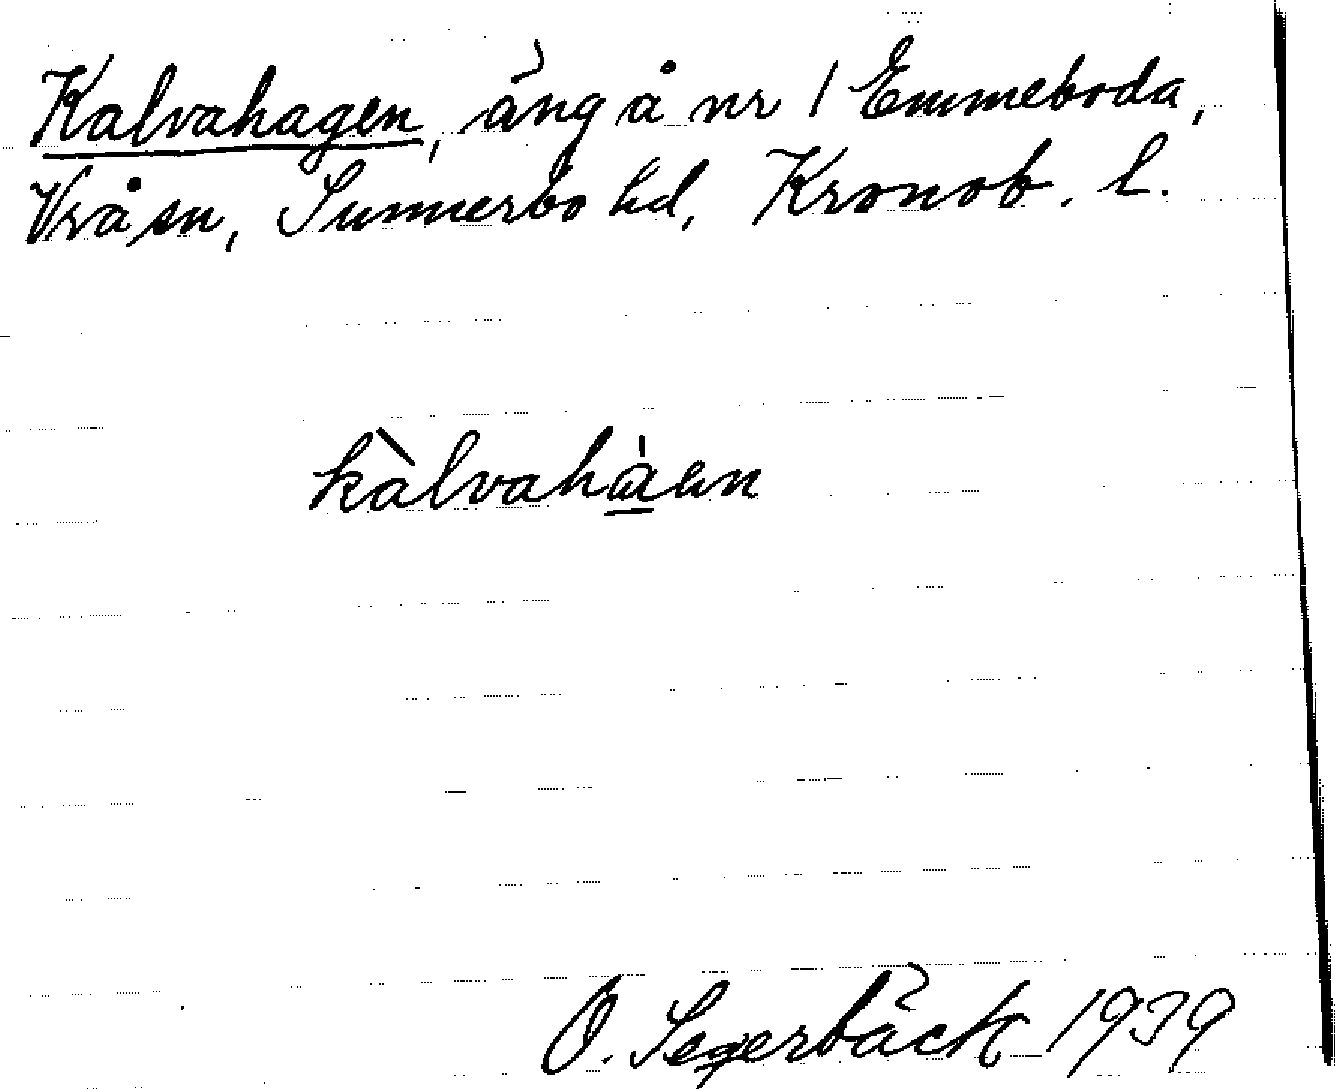 Kalvahagen, äng å nr 1 Emmeboda,
Vrå sn, Sunnerbo hd, Kronob. l.
kàlvahàen
O. Segerbäck 1939